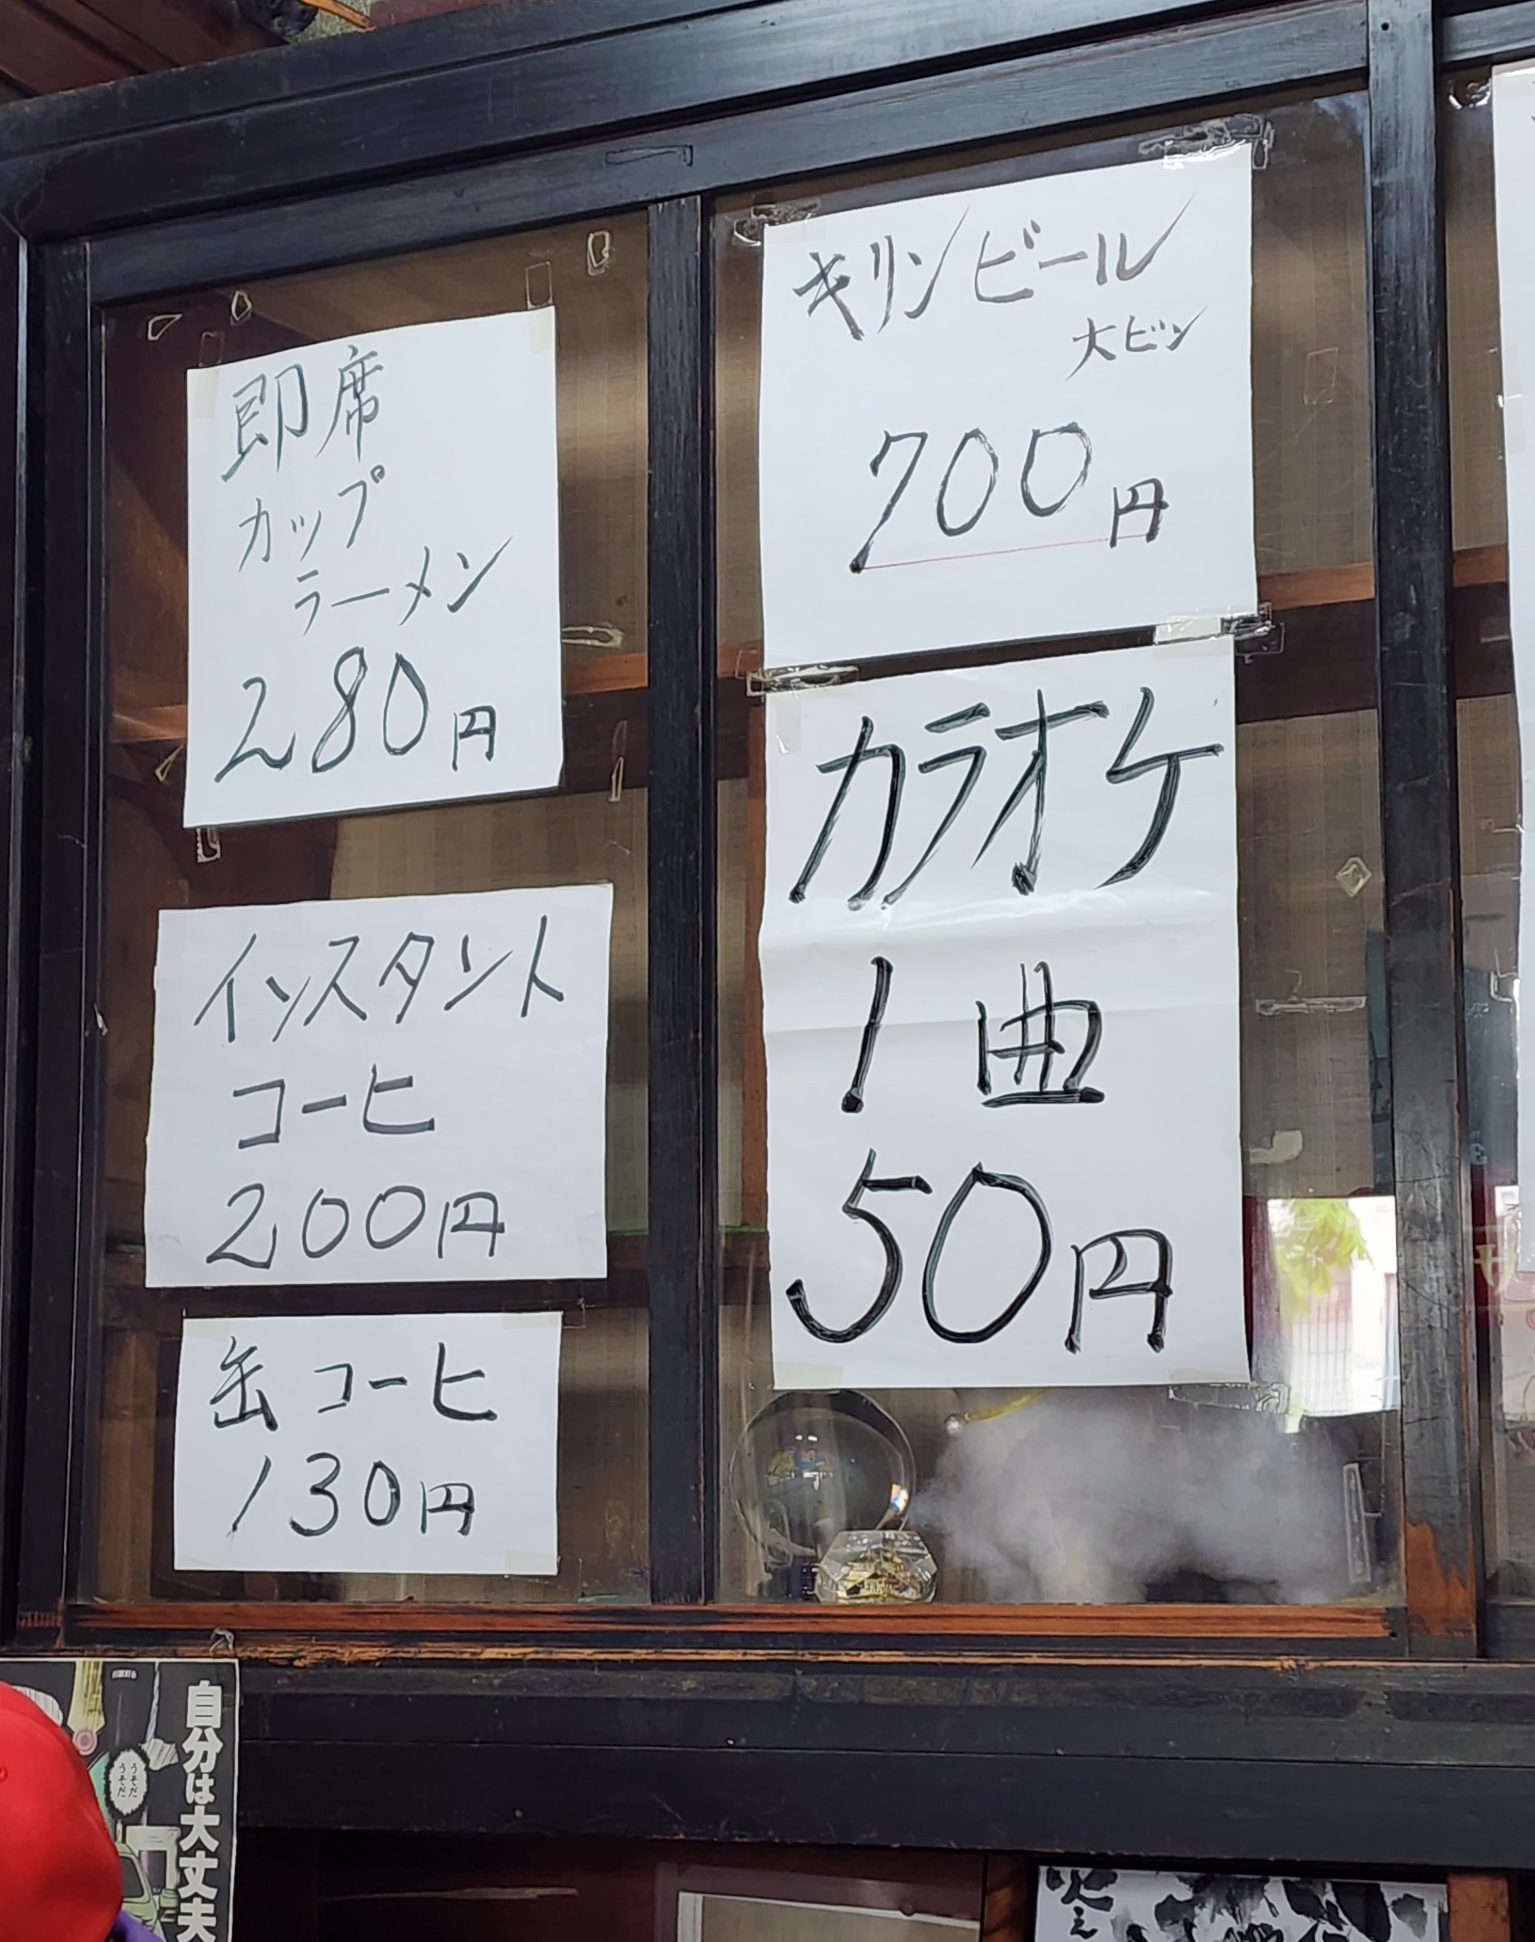 即席
カップ
ラーメン
280円
インスタント
コーヒ
200円
缶コーヒ
130円
キリンビール
大ビン
700円
カラオケ
1曲
50円
自分は大丈夫
うそだ
うそだ